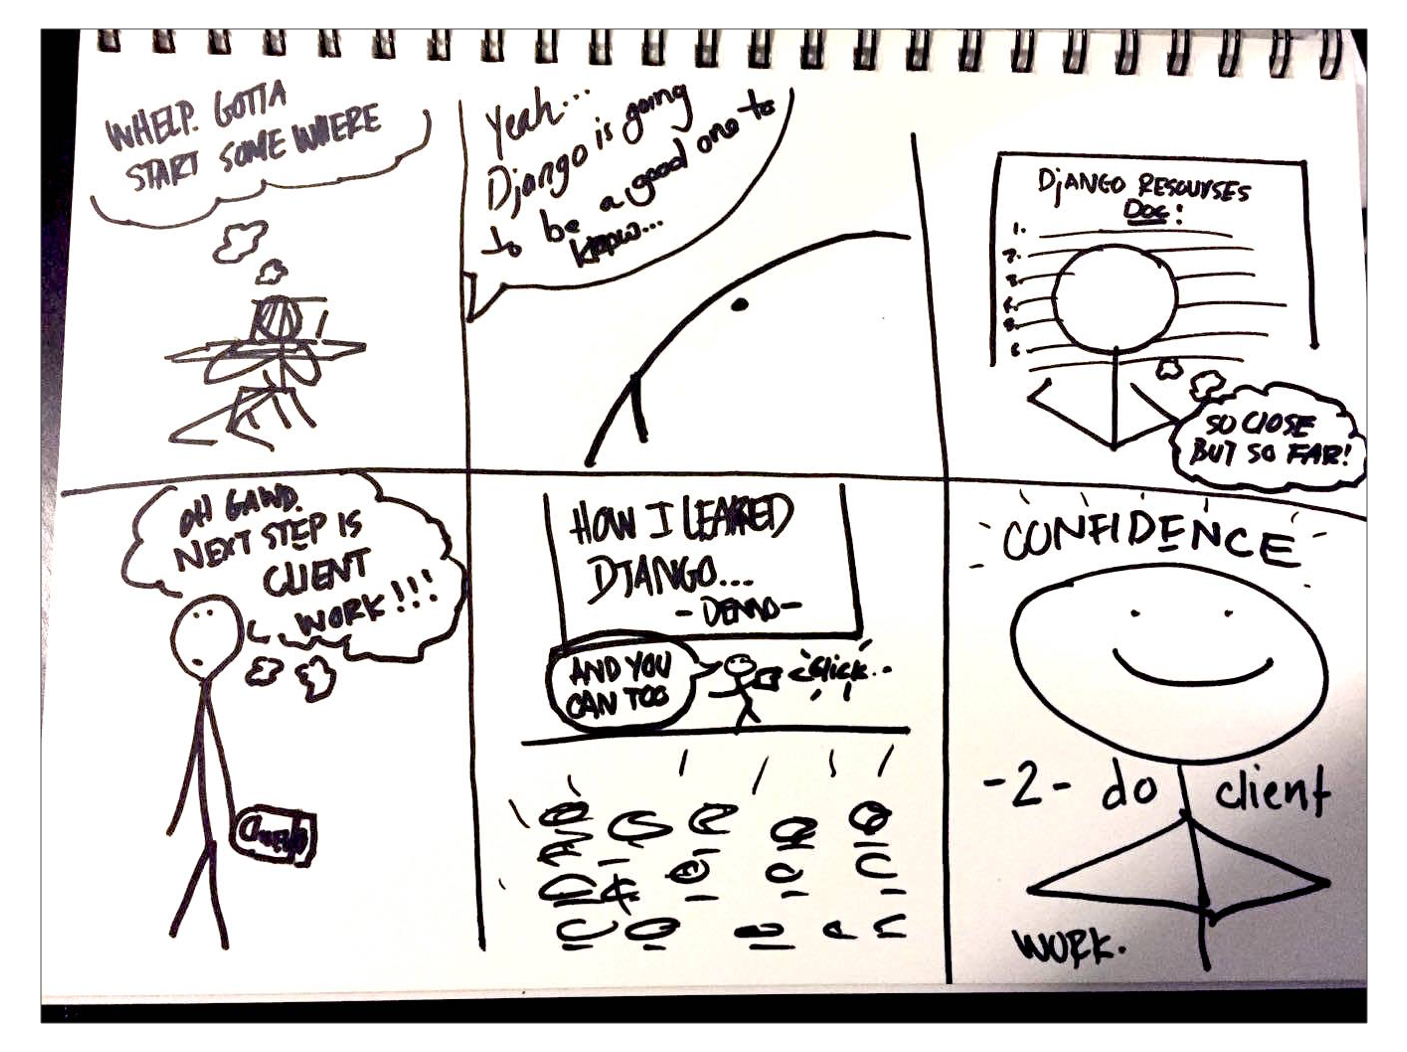 WHELP. GOTTA
START SOME WHERE
Yeah...
Django is going
to be a good one to
know...
DJANGO RESOURSES
DOC!
1.
2.
3.
4.
5.
6.
SO CLOSE
BUT SO FAR!
OH GAWD.
NEXT STEP IS
CLIENT
WORK!!!
HOW I LEARED
DJANGO...
-DEMO-
AND YOU
CAN TOO
click..
CONFIDENCE
-2- do client
WORK.